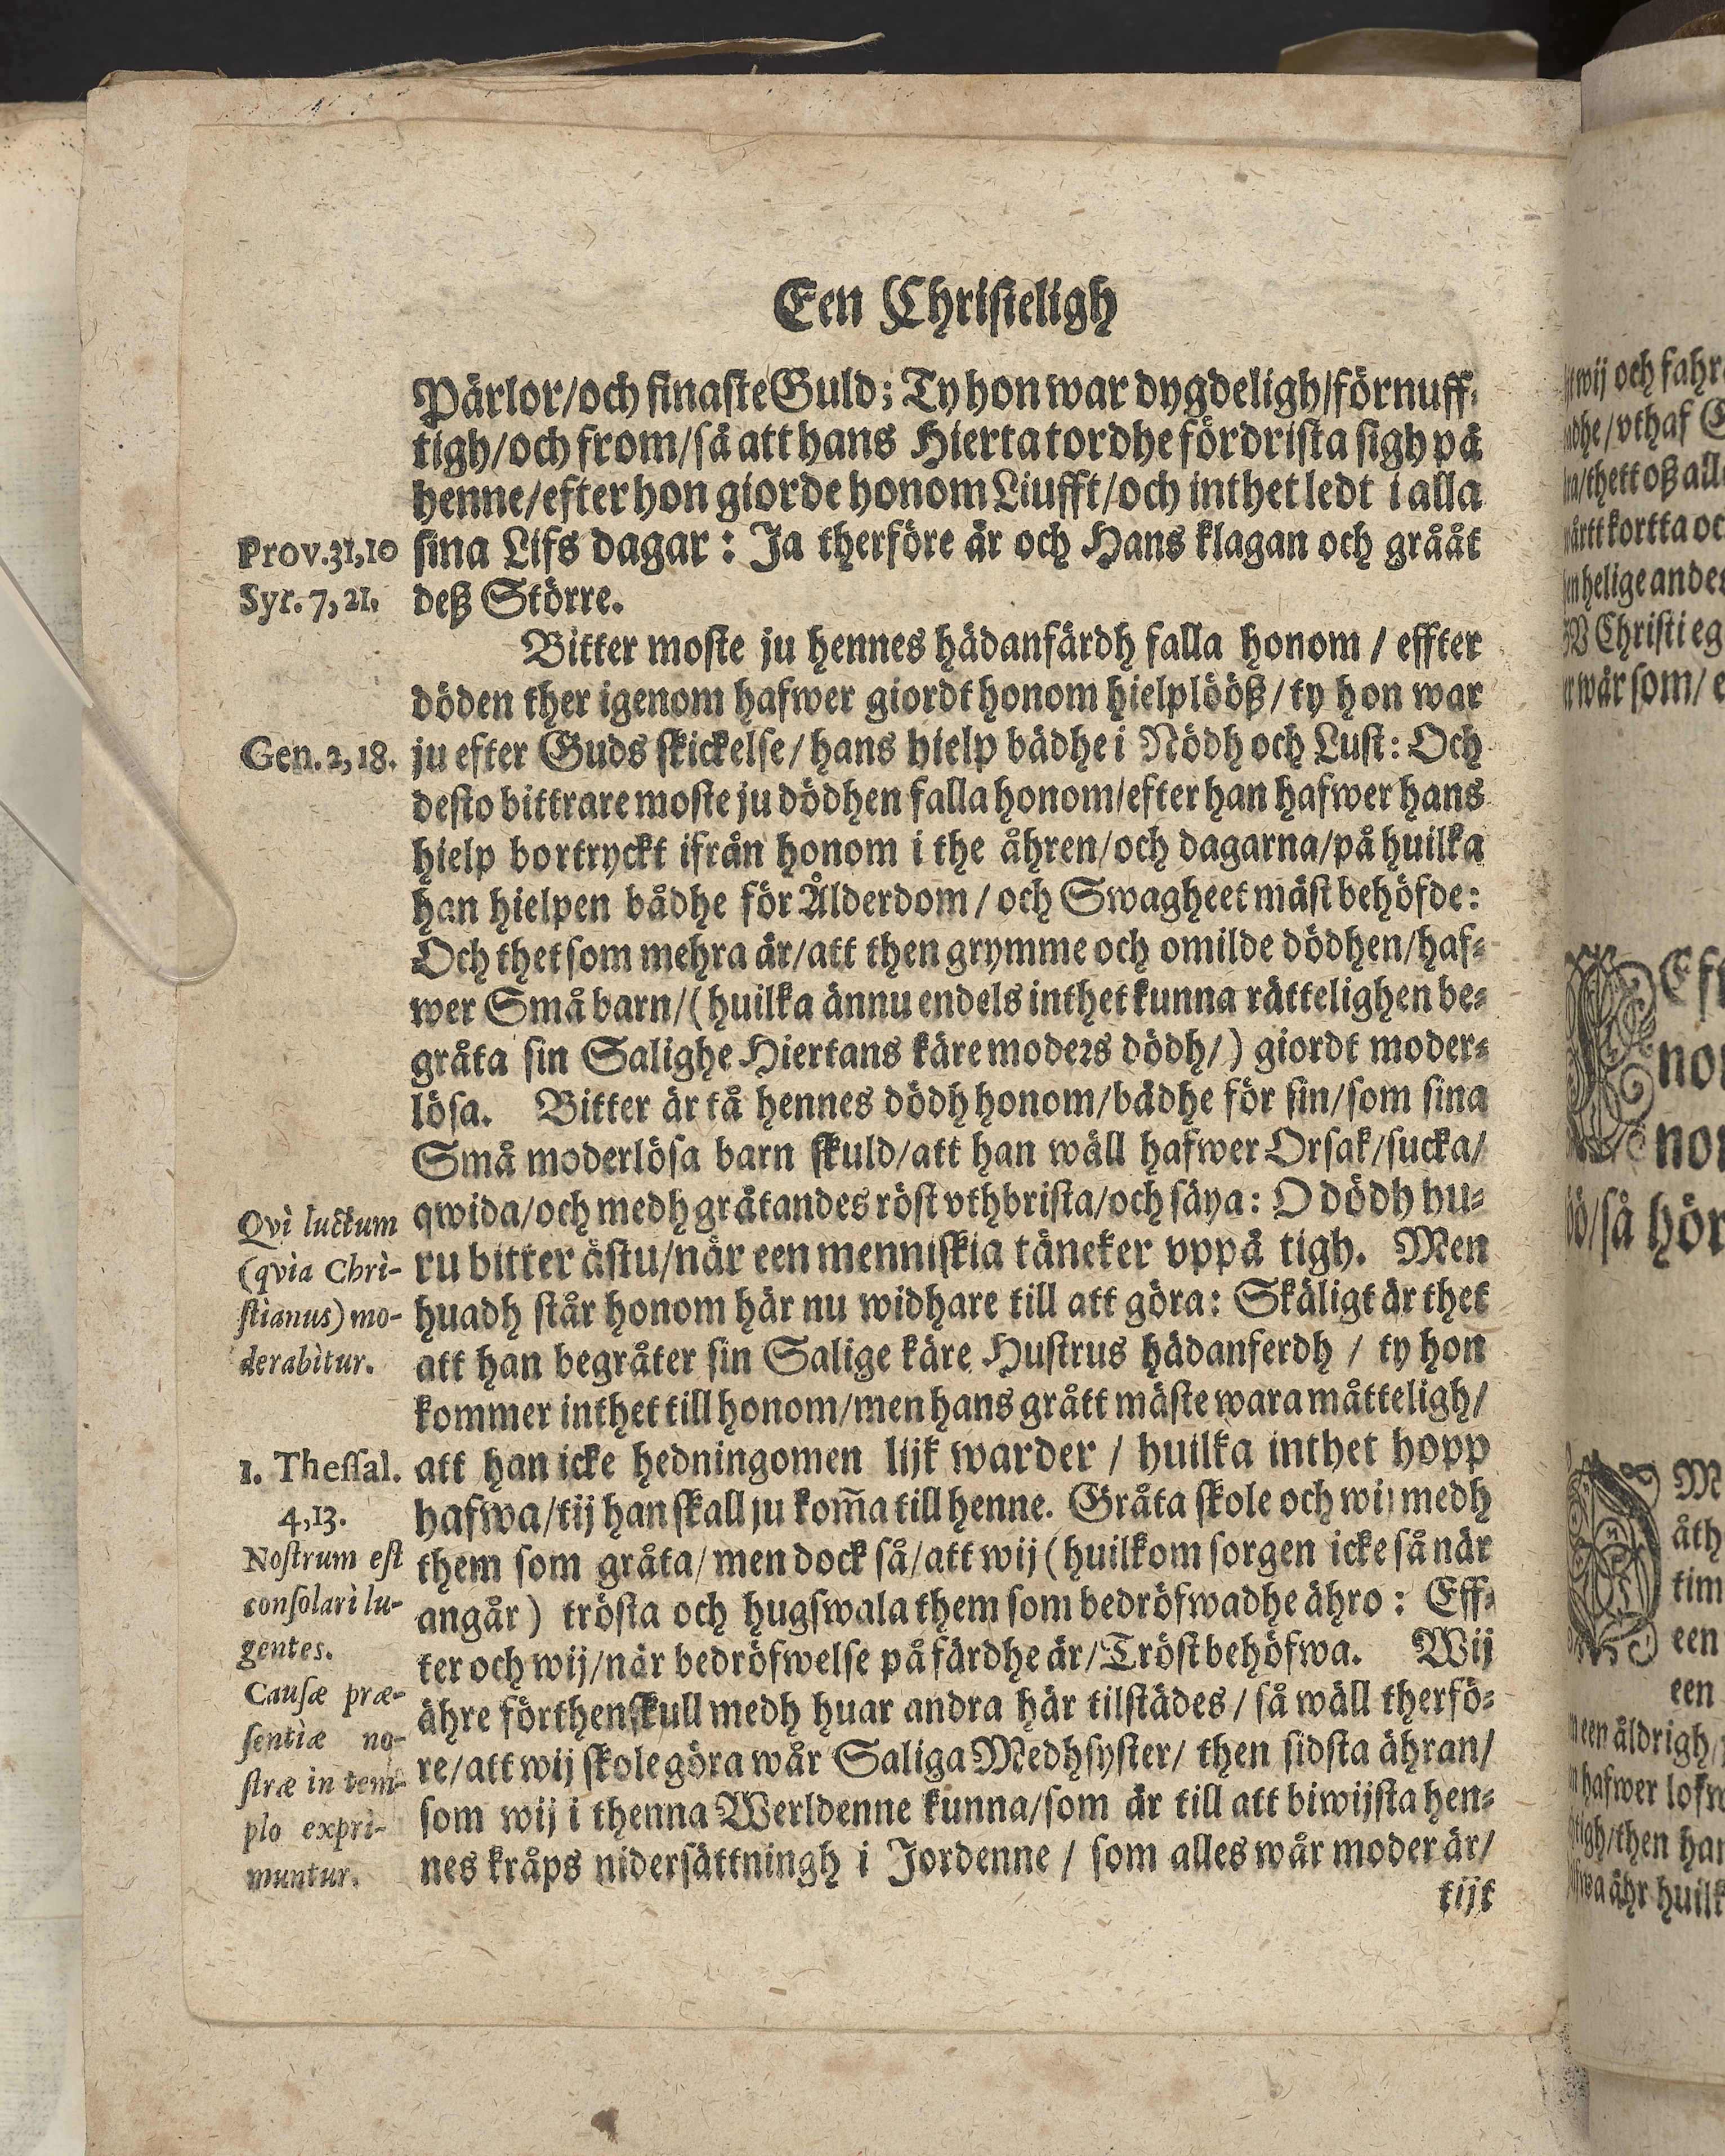 Een Christeligh
Pärlor/och finaste Guld; Ty hon war dygdeligh/förnuff-
tigh/och from/så att hans Hierta tordhe fördrista sigh på
henne/efter hon giorde honom Liufft/och inthet ledt i alla
Prov.31,10
sina Lifs dagar: Ja therföre är och Hans klagan och grååt
Syr. 7, 21.
deß Större.
Bitter moste ju hennes hädanfärdh falla honom / effter
döden ther igenom hafwer giordt honom hielplööß/ty hon war
Gen. 2, 18.
ju efter Guds skickelse/hans hielp bådhe i Nödh och Lust: Och
desto bittrare moste ju dödhen falla honom/efter han hafwer hans
hielp bortryckt ifrån honom i the åhren/och dagarna/på huilka
han hielpen bådhe för Ålderdom/och Swagheet mäst behöfde:
Och thet som mehra är/att then grymme och omilde dödhen/haf-
wer Små barn/(huilka ännu endels inthet kunna rättelighen be-
gråta sin Salighe Hiertans käre moders dödh/) giordt moder-
lösa. Bitter är tå hennes dödh honom/bådhe för sin/som sina
Små moderlösa barn skuld/att han wäll hafwer Orsak/sucka/
Qvi luctum
qwida/och medh gråtandes röst vthbrista/och säya: O dödh hu-
(qvia Chri-
ru bitter ästu/när een menniskia täncker vppå tigh. Men
stianus) mo-
huadh står honom här nu widhare till att göra: Skäligt är thet
derabitur.
att han begråter sin Salige käre Hustrus hädanferdh / ty hon
kommer inthet till honom/men hans grått mäste wara måtteligh/
1. Thessal.
att han icke hedningomen lijk warder / huilka inthet hopp
4,13.
hafwa/tij han skall ju kom̃a till henne. Gråta skole och wij medh
Nostrum est
them som gråta/men dock så/att wij (huilkom sorgen icke så när
consolari lu-
angår) trösta och hugswala them som bedröfwadhe ähro: Eff-
gentes.
ter och wij/når bedröfwelse på färdhe är/Tröst behöfwa. Wij
Causæ præ-
ähre förthenskull medh huar andra här tilstädes/så wäll therfö-
sentiæ no-
re/att wij skole göra wår Saliga Medhsyster/ then sidsta ähran/
stræ in tem-
som wij i thenna Werldenne kunna/som är till att biwijsta hen-
plo expri-
nes kråps nidersättningh i Jordenne / som alles wår moder är/
muntur.
tijt